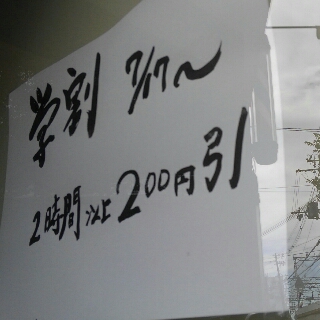 学割 7/17～
2時間以上200円引